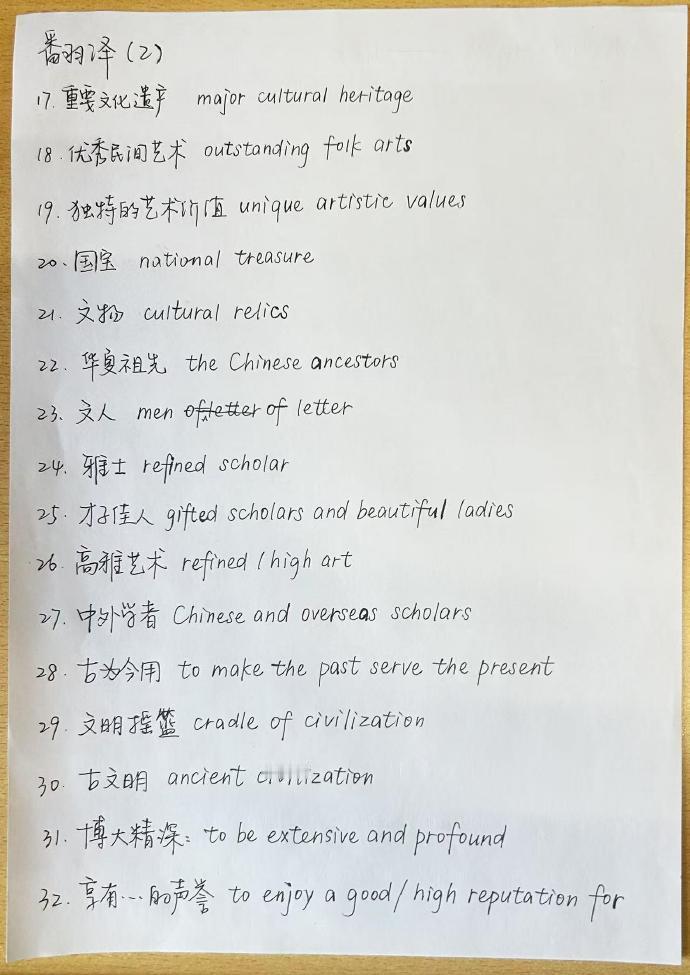 翻译(2)
17. 重要文化遗产 major cultural heritage
18. 优秀民间艺术 outstanding folk arts
19. 独特的艺术价值 unique artistic values
20. 国宝 national treasure
21. 文物 cultural relics
22. 华夏祖先 the Chinese ancestors
23. 文人 men of letter
24. 雅士 refined scholar
25. 才子佳人 gifted scholars and beautiful ladies
26. 高雅艺术 refined / high art
27. 中外学者 Chinese and overseas scholars
28. 古为今用 to make the past serve the present
29. 文明摇篮 cradle of civilization
30. 古文明 ancient civilization
31. 博大精深: to be extensive and profound
32. 享有…的声誉 to enjoy a good / high reputation for